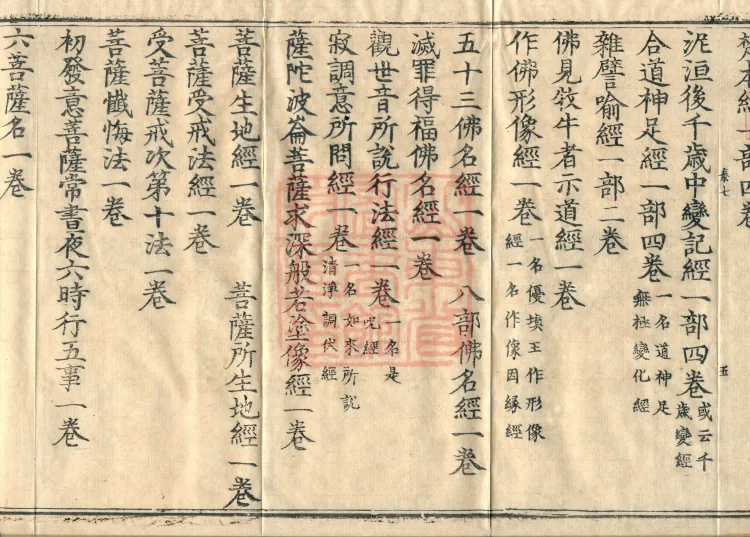 梵本經一部四卷
秦七
五
泥洹後千歲中變記經一部四卷 或云千歲變經
合道神足經一部四卷 一名道神足無極變化經
雜譬喻經一部二卷
佛見牧牛者示道經一卷
作佛形像經一卷 一名優填王作形像經一名作像因緣經
五十三佛名經一卷 八部佛名經一卷
滅罪得福佛名經一卷
觀世音所說行法經一卷 一名是呪經
寂調意所問經一卷 一名如來所說清淨調伏經
薩陀波崙菩薩求深般若塗像經一卷
菩薩生地經一卷 菩薩所生地經一卷
菩薩受戒法經一卷
受菩薩戒次第十法一卷
菩薩懺悔法一卷
初發意菩薩常晝夜六時行五事一卷
六菩薩名一卷